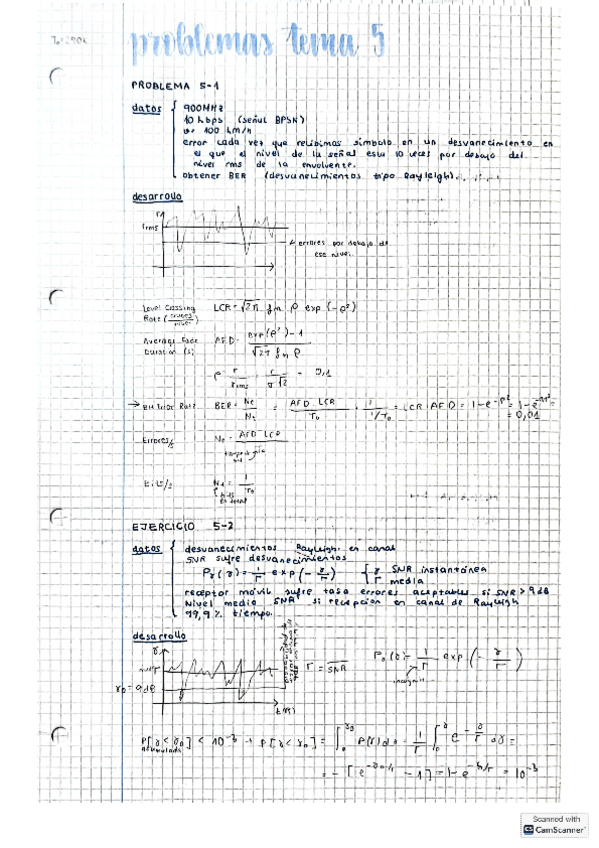 problemas tema 5
PROBLEMA 5-1
datos
900MHz
10 kbps (señal BPSK)
v= 100 km/h
error cada vez que recibimos símbolo en un desvanecimiento en
el que el nivel de la señal esta 10 veces por debajo del
nivel rms de la envolvente.
obtener BER (desvanecimientos tipo Rayleigh).
desarrollo
r
rrms
errores por debajo de
ese nivel.
Level Crossing LCR = √2π fm ρ exp (-ρ²)
Rate (cruces/
Average Fade AFD = exp(ρ²)-1 / √2π fm ρ
Duration (s)
ρ = r/rrms = r/σ√2 = 0,1
→ Bit Error Rate BER = Ne/Nb = AFD LCR/To · 1/1/To = LCR AFD = 1-e^-ρ² =
= 0,01
Errores/s Ne = AFD LCR
Bits/s = 1/To
EJERCICIO 5-2
datos
desvanecimientos Rayleigh en canal
SNR sufre desvanecimientos
Pγ(γ) = 1/Γ exp(- γ/Γ) { γ SNR instantánea
Γ media
receptor móvil sufre tasa errores aceptables si SNR > 9dB
Nivel medio SNR si recepcion en canal de Rayleigh
99,9% tiempo.
desarrollo
γ
γ0 = 9dB
Γ = SNR
Pγ(γ) = 1/Γ exp (- γ/Γ)
P[γ<γ0] < 10^-3 → P[γ<γ0] = ∫ P(γ)dγ = 1/Γ ∫ e^-γ/Γ dγ =
acumulada
= - [e^-γ0/Γ - 1] = 1-e^-γ0/Γ = 10^-3
Scanned with
CamScanner